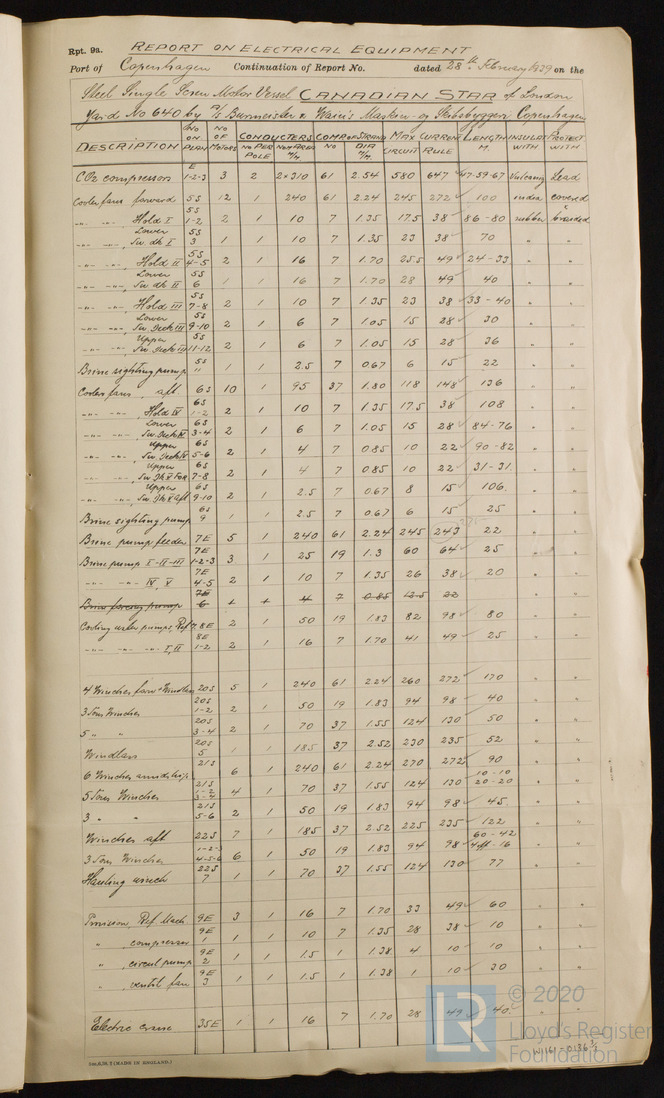 Rpt. 9a. REPORT ON ELECTRICAL EQUIPMENT
Port of Copenhagen Continuation of Report No. dated 28th February 1939 on the
Steel Single Screw Motor Vessel CANADIAN STAR of London
Yard No 640 by A/S Burmeister & Wain's Maskin- og Skibsbyggeri Copenhagen
DESCRIPTION No ON PLAN No OF MOTORS CONDUCTORS No PER POLE NOM AREA m/m COMP OF STRAND No DIA m/m. MAX CURRENT CIRCUIT RULE LENGTH M. INSULAT WITH PROTECT WITH
CO2 compressor E 1-2-3 3 2 2x310 61 2.54 580 647 47-59-67 Vulcaniz Lead
Cooler fans forward 5S 12 1 240 61 2.24 245 272 100 india covered
-"- -"- Hold I 5S 1-2 2 1 10 7 1.35 17.5 38 86-80 rubber & braided
-"- -"- Lower Tw. dk I 5S 3 1 1 10 7 1.35 23 38 70 " "
-"- -"- Hold II 5S 4-5 2 1 16 7 1.70 25.5 49 24-33 " "
-"- -"- Lower Tw. dk II 5S 6 1 1 16 7 1.70 28 49 40 " "
-"- -"- Hold III 5S 7-8 2 1 10 7 1.35 23 38 33-40 " "
-"- -"- Lower Tw. Deck III 5S 9-10 2 1 6 7 1.05 15 28 30 " "
-"- -"- Upper Tw. Deck III 5S 11-12 2 1 6 7 1.05 15 28 36 " "
Brine sighting pump 5S 11 1 1 2.5 7 0.67 6 15 22 " "
Cooler fans, aft 6S 10 1 95 37 1.80 118 148 136 " "
-"- -"- Hold IV 6S 1-2 2 1 10 7 1.35 17.5 38 108 " "
-"- -"- Lower Tw. Deck IV 6S 3-4 2 1 6 7 1.05 15 28 84-76 " "
-"- -"- Upper Tw. Deck IV 6S 5-6 2 1 4 7 0.85 10 22 90-82 " "
-"- -"- Upper Tw. Dk V For 6S 7-8 2 1 4 7 0.85 10 22 31-31 " "
-"- -"- Upper Tw. Dk V aft 6S 9-10 2 1 2.5 7 0.67 8 15 106 " "
Brine sighting pump 6S 9 1 1 2.5 7 0.67 6 15 25 " "
Brine pump feeder 7E 5 1 240 61 2.24 245 243 22 " "
Brine pump I-II-III 7E 1-2-3 3 1 25 19 1.3 60 64 25 " "
-"- -"- IV, V 7E 4-5 2 1 10 7 1.35 26 38 20 " "
Brine forcing pump 7E 6 1 1 4 7 0.85 12.5 22
Cooling water pumps, Ref 7.8E 2 1 50 19 1.83 82 98 80 " "
-"- -"- -"- I, II 8E 1-2 2 1 16 7 1.70 41 49 25 " "
4 Winches forw + Windlass 20S 5 1 240 61 2.24 260 272 170 " "
3 Tons Winches 20S 1-2 2 1 50 19 1.83 94 98 40 " "
5 " " 20S 3-4 2 1 70 37 1.55 124 130 50 " "
Windlass 20S 5 1 1 185 37 2.52 230 235 52 " "
6 Winches amidship 21S 6 1 240 61 2.24 270 272 90 " "
5 Tons Winches 21S 1-2 3-4 4 1 70 37 1.55 124 130 10-10 20-20 " "
3 " " 21S 5-6 2 1 50 19 1.83 94 98 45 " "
Winches aft 22S 7 1 185 37 2.52 225 235 122 " "
3 Tons Winches 1-2-3 4-5-6 6 1 50 19 1.83 94 98 60-42 16 " "
Hauling winch 22S 7 1 1 70 37 1.55 124 130 77 " "
Provision, Ref Mach 9E 3 1 16 7 1.70 33 49 60 " "
" , compressor 9E 1 1 1 10 7 1.35 28 38 10 " "
" , circul pump 9E 2 1 1 1.5 1 1.38 4 10 10 " "
" , ventil fan 9E 3 1 1 1.5 1 1.38 1 10 30 " "
Electric crane 35E 1 1 16 7 1.70 28 49 40 " "
(MADE IN ENGLAND.)
LR © 2020
Lloyd's Register
Foundation
W1161-0136 3/3